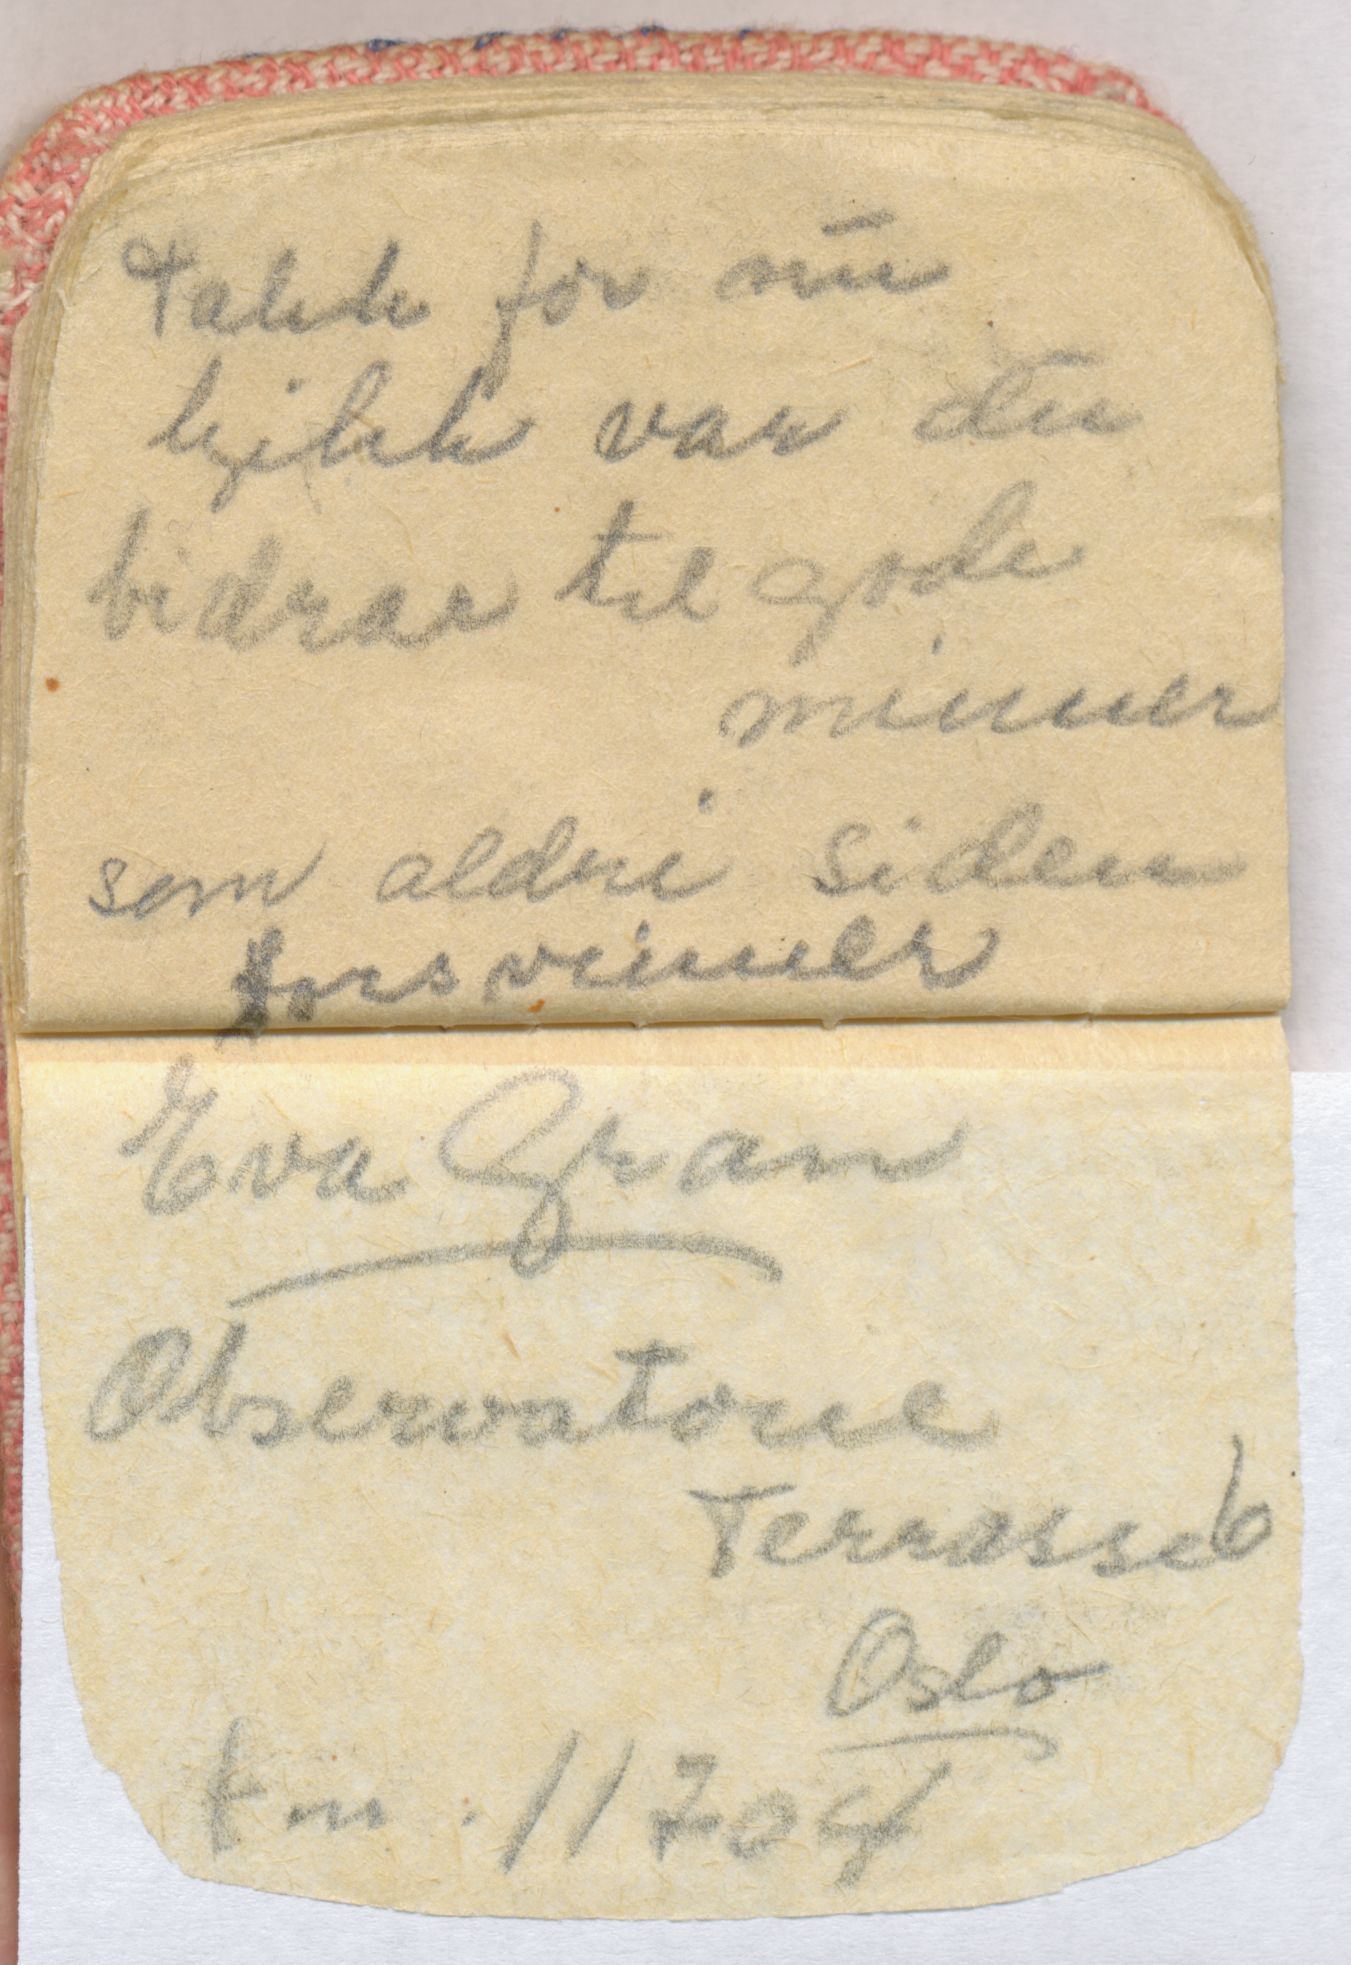 Takk for nu
kjekk var du
bidrar til gode
minner
som aldri siden
forsvinner
Eva Gran
Observatorie
Terrasse 6
Oslo
f nr. 11704